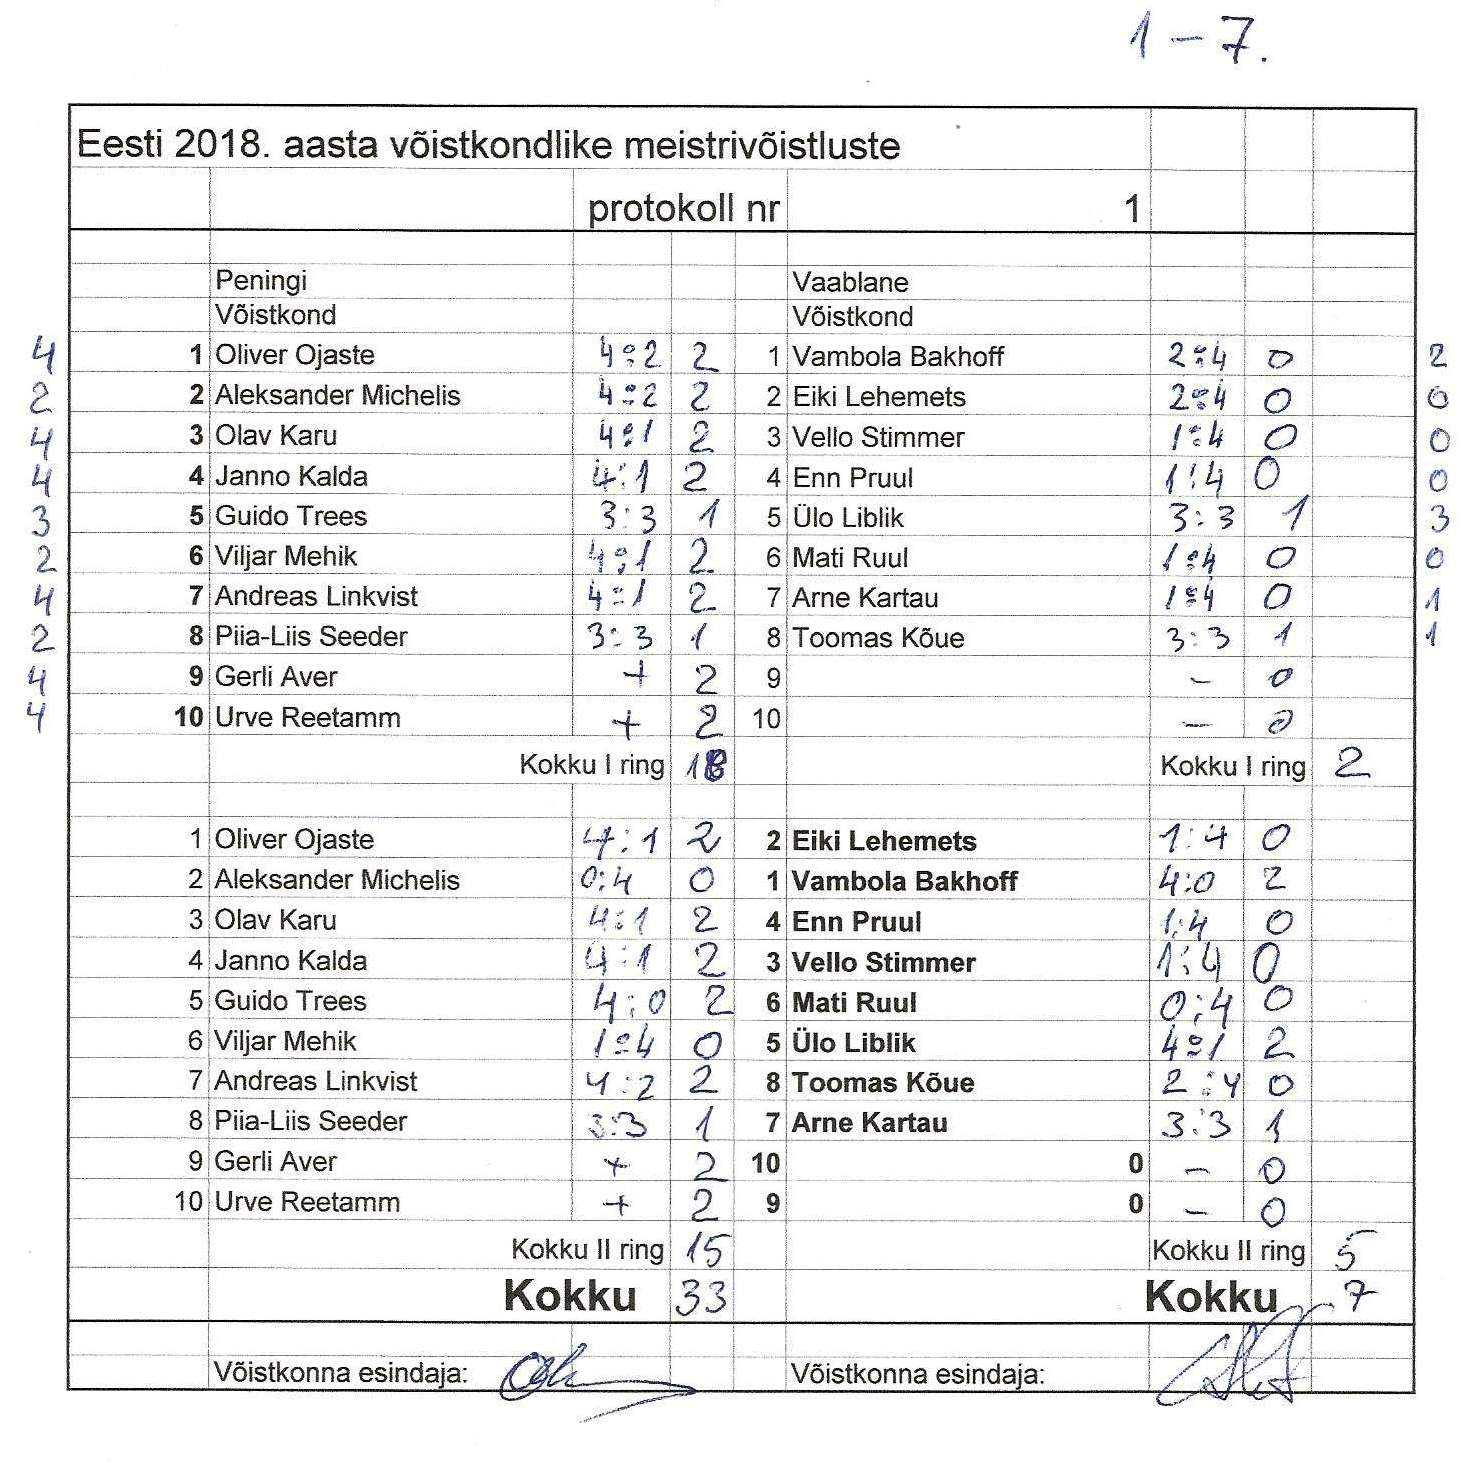 1 – 7.
Eesti 2018. aasta võistkondlike meistrivõistluste
protokoll nr 1
Peningi Vaablane
Võistkond Võistkond
4 1 Oliver Ojaste 4:2 2 1 Vambola Bakhoff 2:4 0 2
2 2 Aleksander Michelis 4:2 2 2 Eiki Lehemets 2:4 0 0
4 3 Olav Karu 4:1 2 3 Vello Stimmer 1:4 0 0
4 4 Janno Kalda 4:1 2 4 Enn Pruul 1:4 0 0
3 5 Guido Trees 3:3 1 5 Ülo Liblik 3:3 1 3
2 6 Viljar Mehik 4:1 2 6 Mati Ruul 1:4 0 0
4 7 Andreas Linkvist 4:1 2 7 Arne Kartau 1:4 0 1
2 8 Piia-Liis Seeder 3:3 1 8 Toomas Kõue 3:3 1 1
4 9 Gerli Aver + 2 9 – 0
4 10 Urve Reetamm + 2 10 – 0
Kokku I ring 18 Kokku I ring 2
1 Oliver Ojaste 4:1 2 2 Eiki Lehemets 1:4 0
2 Aleksander Michelis 0:4 0 1 Vambola Bakhoff 4:0 2
3 Olav Karu 4:1 2 4 Enn Pruul 1:4 0
4 Janno Kalda 4:1 2 3 Vello Stimmer 1:4 0
5 Guido Trees 4:0 2 6 Mati Ruul 0:4 0
6 Viljar Mehik 1:4 0 5 Ülo Liblik 4:1 2
7 Andreas Linkvist 4:2 2 8 Toomas Kõue 2:4 0
8 Piia-Liis Seeder 3:3 1 7 Arne Kartau 3:3 1
9 Gerli Aver + 2 10 0 – 0
10 Urve Reetamm + 2 9 0 – 0
Kokku II ring 15 Kokku II ring 5
Kokku 33 Kokku 7
Võistkonna esindaja: Võistkonna esindaja: